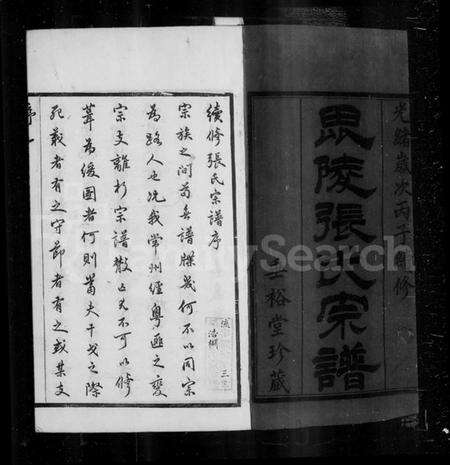 光緒歲次丙子重修
毘陵張氏宗譜
裕堂珍藏
續修張氏宗譜序
宗族之間苟無譜牒幾何不以同宗
為路人也况我常州經粵匪之變
宗支離析宗譜散亡尤不可以修
葺為緩圖者何則當夫干戈之際
死義者有之守節者有之或某支
FamilySearch